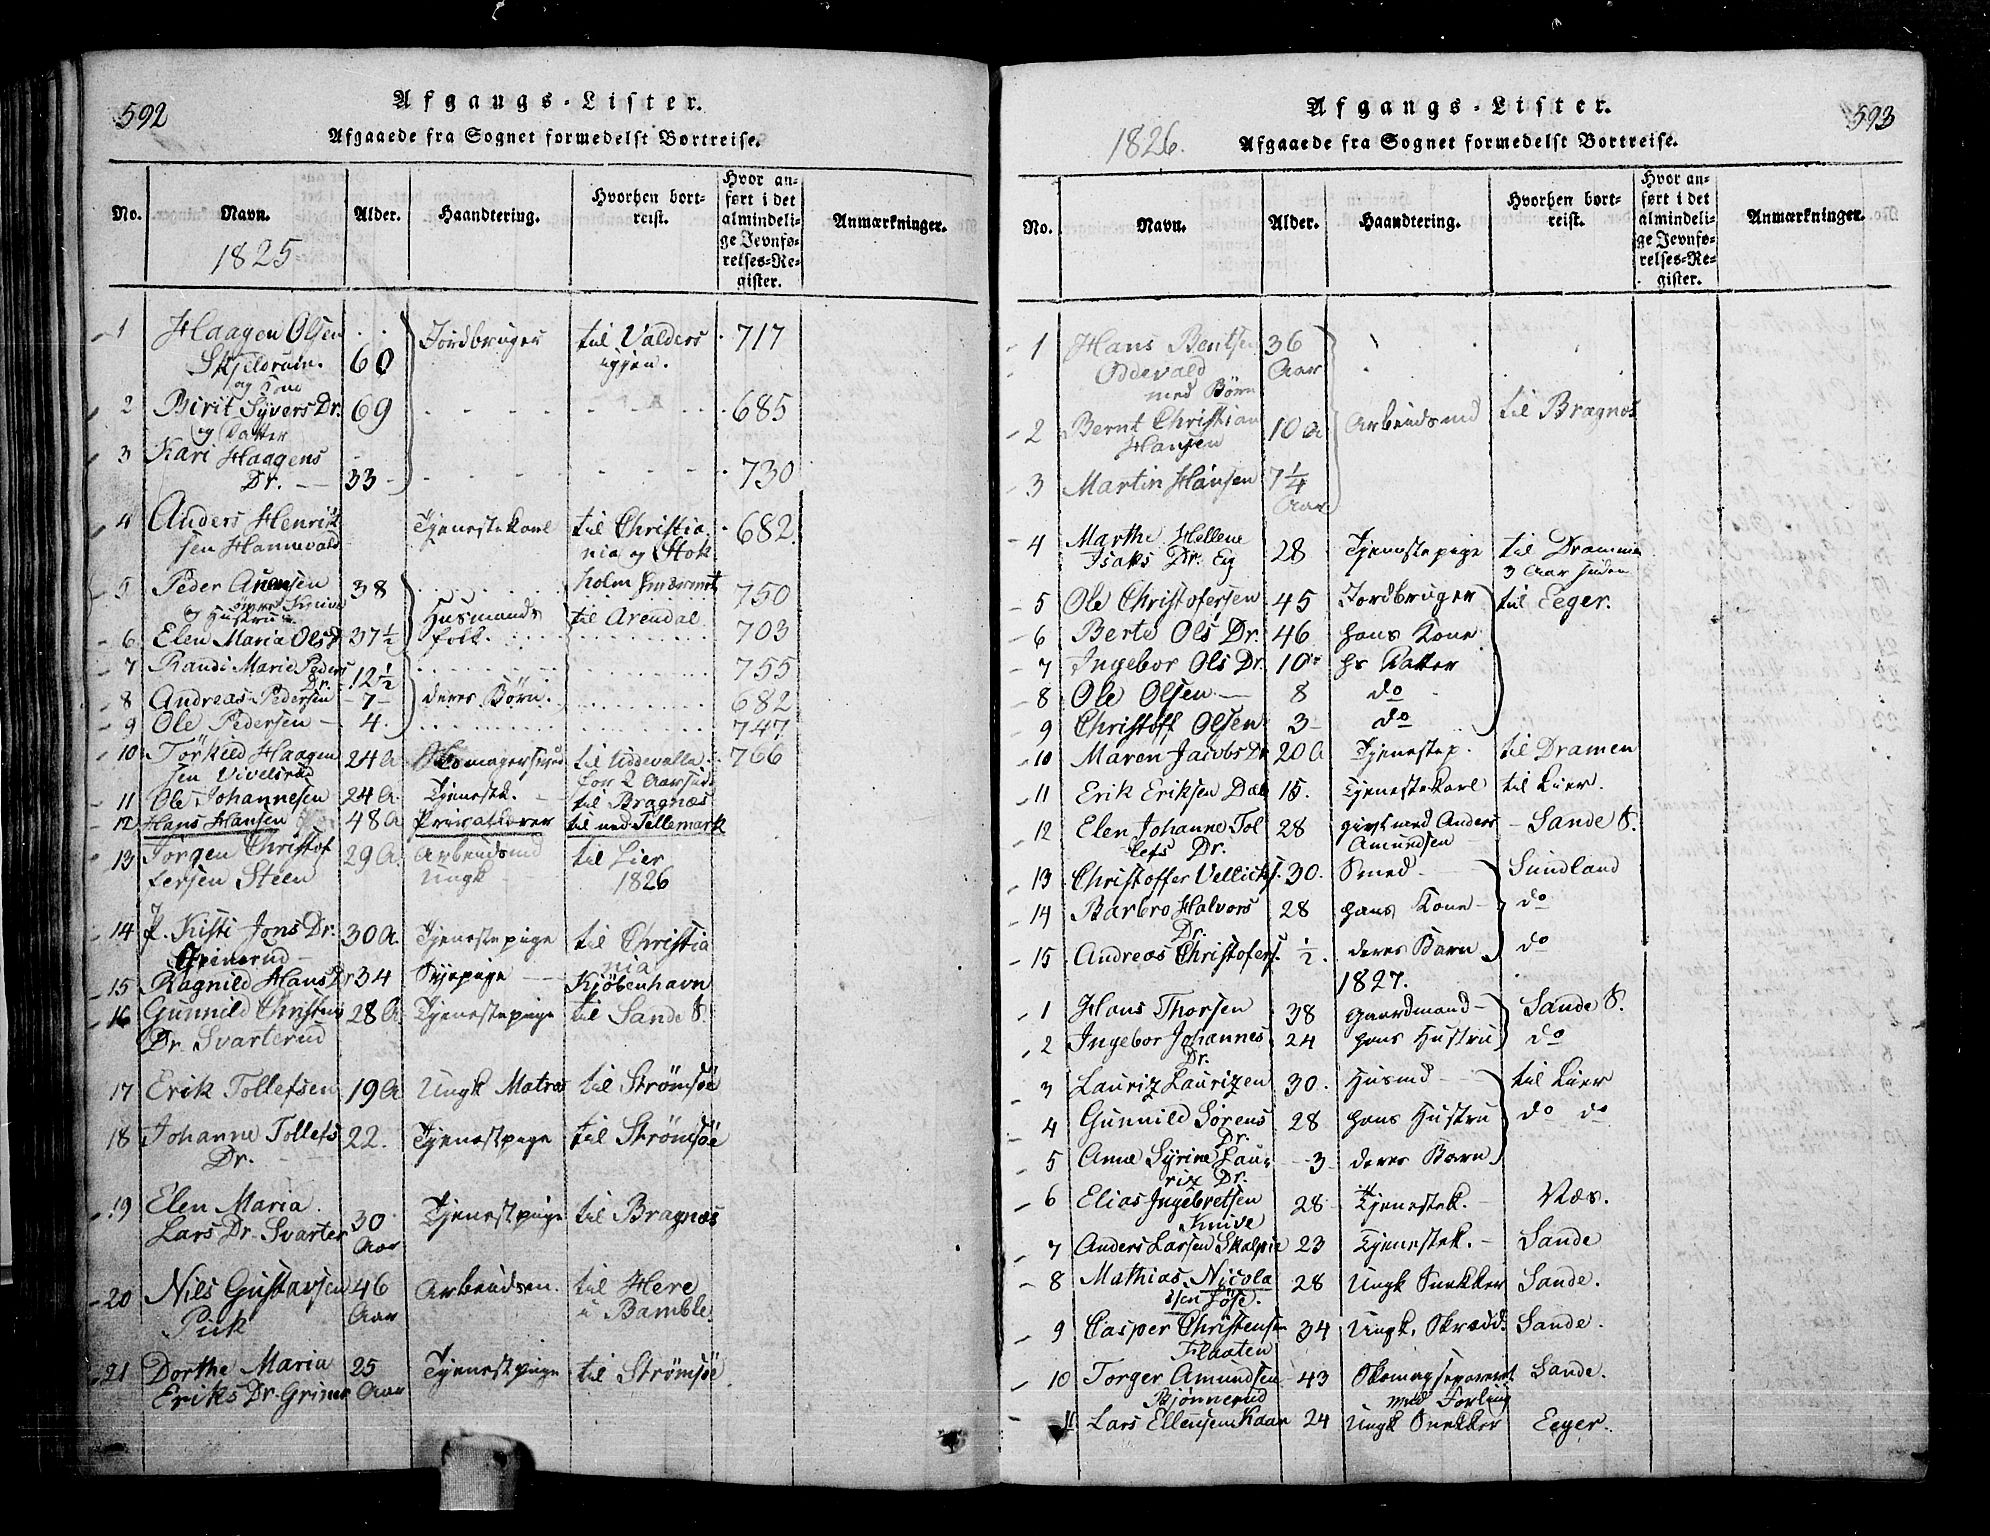 592
Afgangs-Lister.
Afgaaede fra Sognet formedelst Bortreise.
No. Navn. Alder. Haandtering. Hvorhen bortreist. Hvor anført i det almindelige Jevnførelses-Register. Anmærkninger.
1825
1 Haagen Olsen Skjeldrum. 60 Jordbruger til Valders igjen. 717
og Kone
2 Birit Syvers Dr. 69 685
og Datter
3 Kari Haagens Dr. 33 730
4 Anders Henriksen Hannevold Tjenestekarl til Christiania og Stokholm 682.
5 Peder Ansen 38 750
og Hustrue
6 Elen Maria Ols D 37½ Husmands folk. til Arendal 703
7 Randi Marie Peders Dr. 12½ 755
8 Andreas Pedersen 7 deres Børn. 682
9 Ole Pedersen 4. 747
10 Törkild Haagensen Vivelsrud 24 A til Uddevalla for 2 Aar 766
11 Ole Johannesen 24 A. Tjenestk. til Bragnæs
12 Hans Hansen 48 A til ned Tellemark
13 Jorgen Christofersen Steen 29 A. Arbeidsmd Ungk til Lier
1826
14 P. Kisti Jons Dr. 30 A. Tjenestepige til Christiania
15 Ragnild Hans Dr 34 Syepige Kjøbenhavn
16 Gunnild Christens Dr. Svarterud 28 A. Tjenestepige til Sande S.
17 Erik Tollefsen 19 A Ungk Matros til Strömsöe
18 Johanne Tollefs Dr. 22. Tjenestpige til Strömsöe
19 Elen Maria Lars Dr. Svarter 30 Aar Tjenestpige til Bragnæs
20 Nils Gustavsen 46 Aar Arbeidsm. til Here i Bamble.
21 Dorthe Maria Eriks Dr. Grimsr 25 Aar Tjenestpige til Strömsöe.
593
Afgangs-Lister.
1826.
Afgaaede fra Sognet formedelst Bortreise.
No. Navn. Alder. Haandtering. Hvorhen bortreist. Hvor anført i det almindelige Jevnførelses-Register. Anmærkninger.
1 Hans Bentsen Oddevald 36 Aar
med Børn
2 Bernt Christian Hansen 10 A Arbeidsmd til Bragnæs
3 Martin Hansen 7¼ Aar
4 Marthe Hellene Isaks Dr. Eg 28 Tjenestepige til Dramm
3 Aar siden
5 Ole Christofersen 45 Jordbruger til Eeger.
6 Berte Ols Dr. 46 hans Kone
7 Ingebor Ols Dr. 10 hs Datter
8 Ole Olsen 8 do
9 Christoff Olsen 3 do
10 Maren Jacobs Dr 20 A Tjenestep. til Dramen
11 Erik Eriksen 15. Tjenestekarl til Lier.
12 Elen Johanne Tollefs Dr. 28 givt med Anders Amundsen Sande S.
13 Christoffer 30. Smed Sundland
14 Barbro Halvors Dr. 28 hans Kone do
15 Andreas Christofers. ½. deres Barn do
1827.
1 Hans Thorsen 38 Gaardmand Sande S.
2 Ingebor Johannes Dr. 24 hans Hustru do
3 Lauriz Laurizen 30. Husmd til Lier
4 Gunnild Sorens Dr. 28 hans Hustru do do
5 Anne Syrine Lauriz Dr. 3 deres Barn
6 Elias Ingebretsen Knive 28 Tjenestek. Næs.
7 Anders Larsen 23 Tjenestek. Sande
8 Mathias Nicolaisen 28 Ungk Snekker Sande.
9 Casper Christensen Flaaten 34 Ungk. Skrædd. Sande.
10 Torger Amundsen Bjönnerud 43 Sande.
11 Lars Ellensen Kaar 24 Ungk Snekker Eeger.